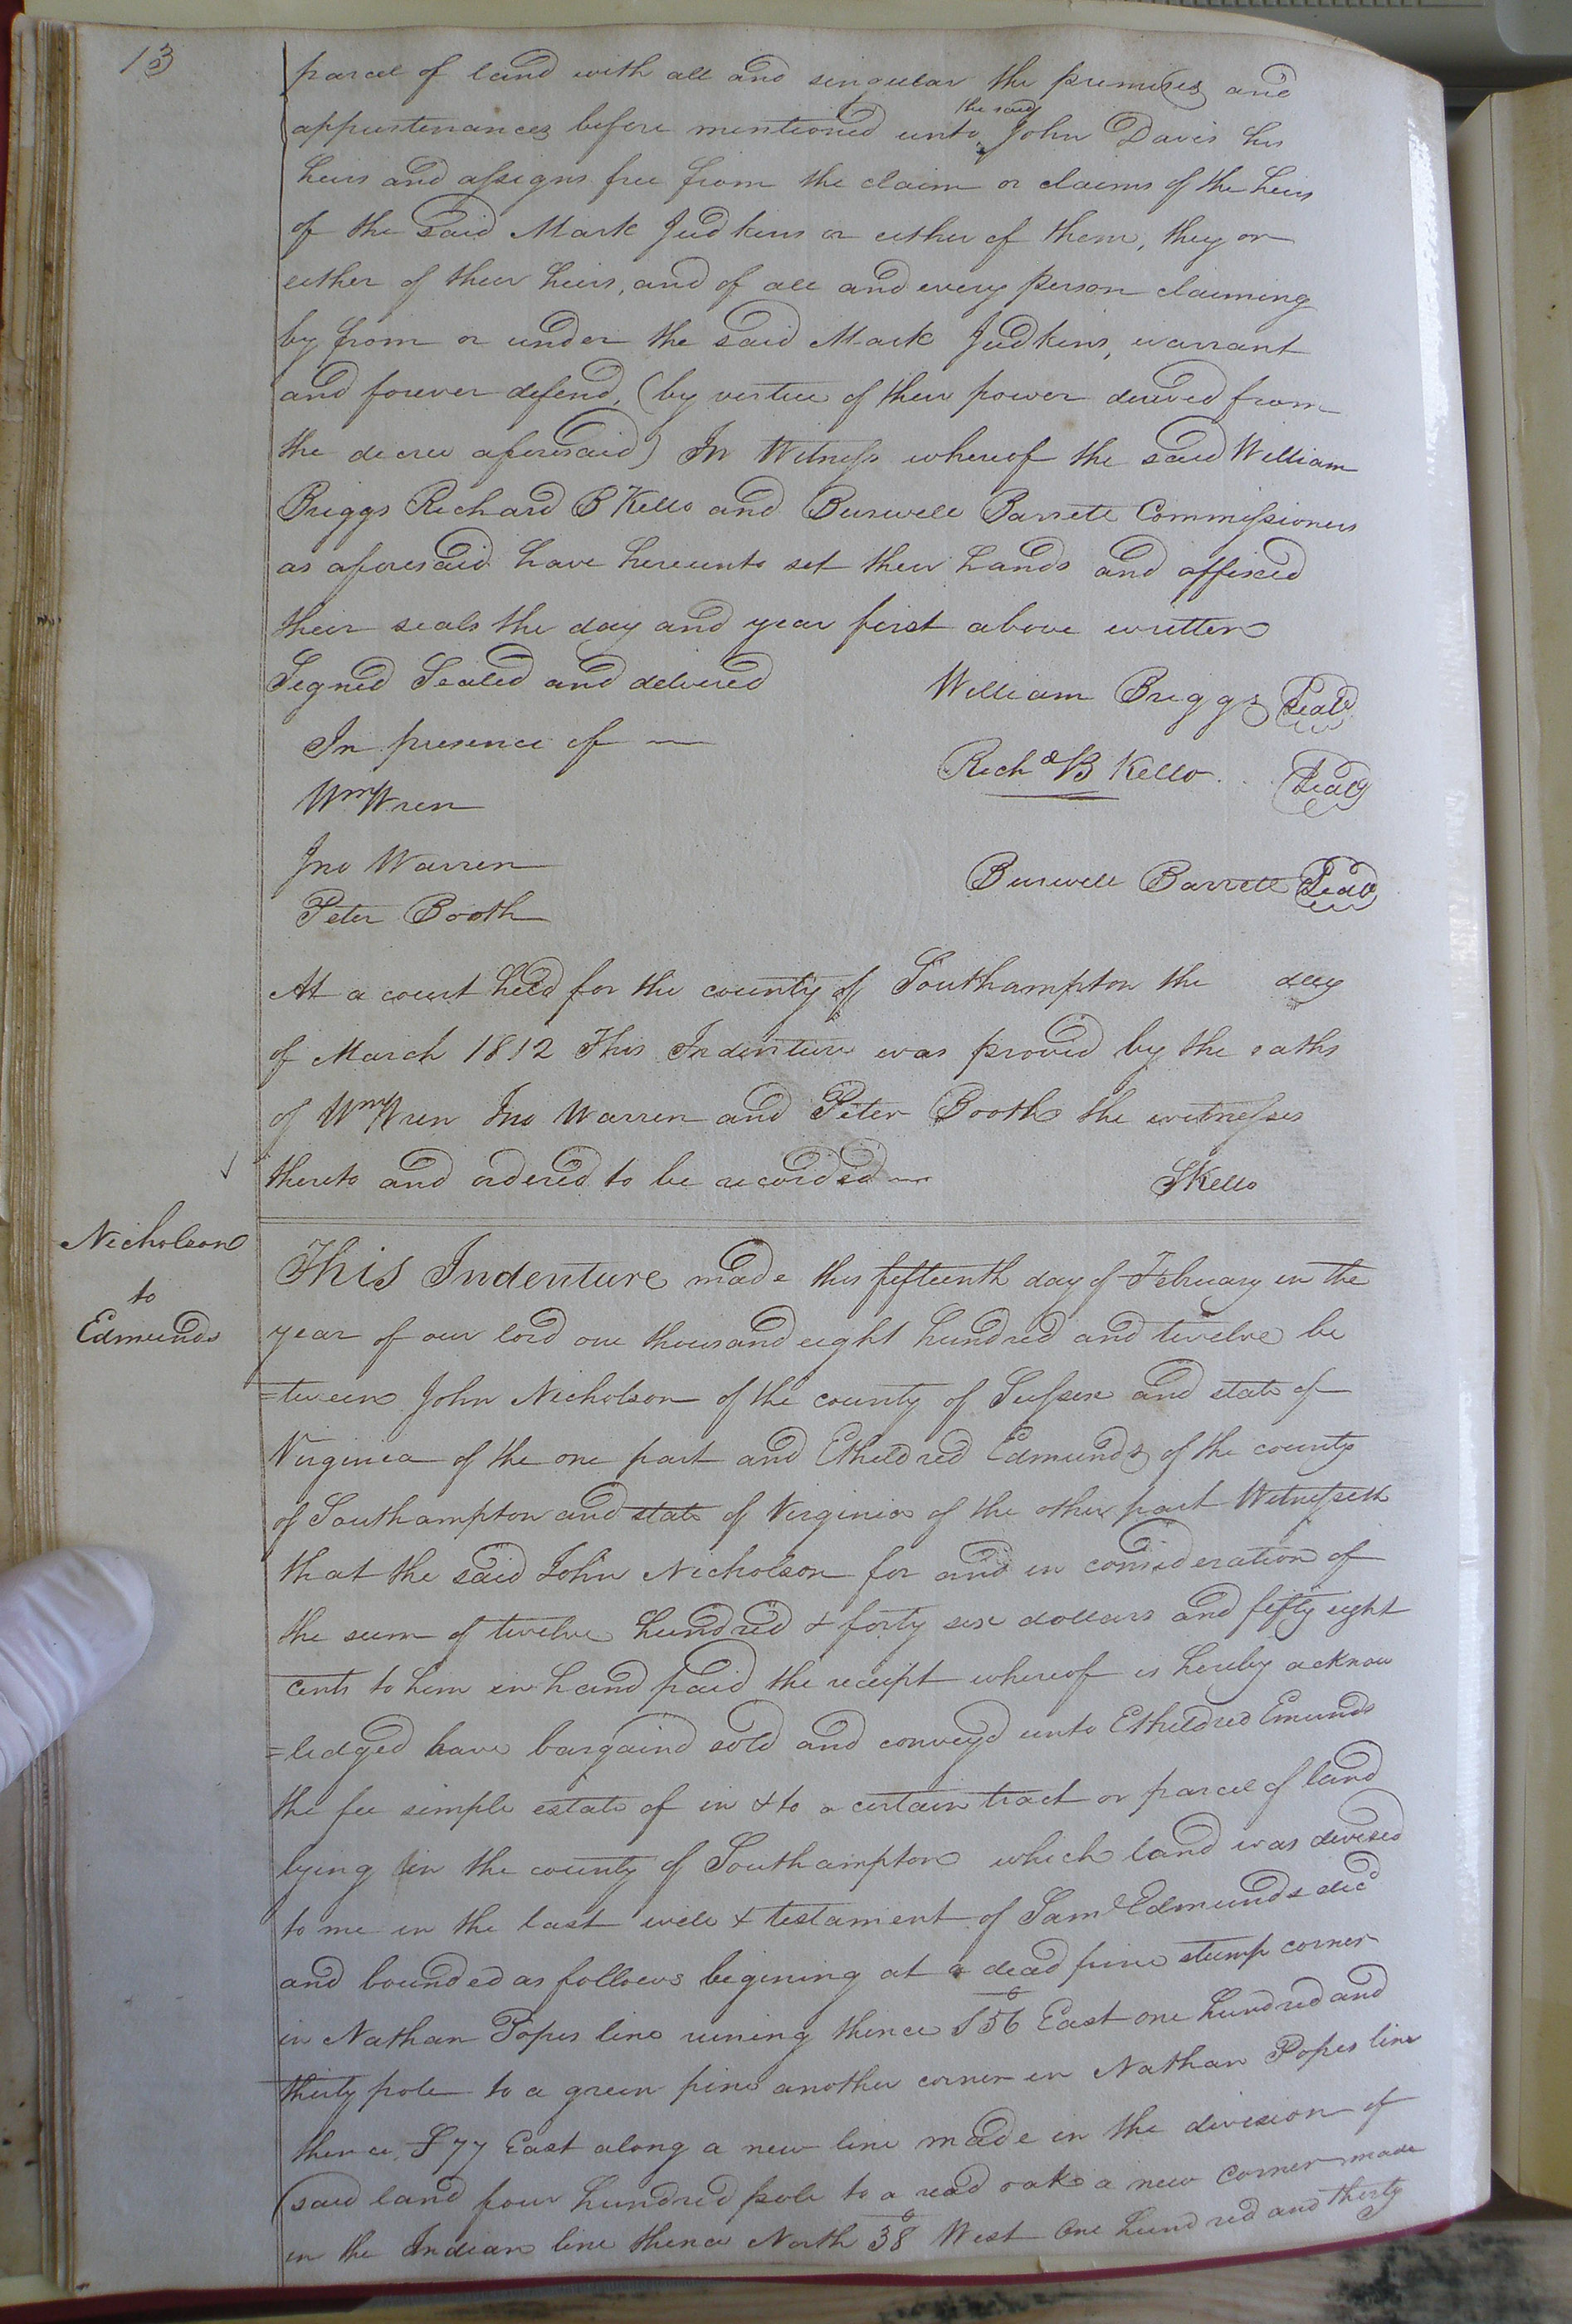 13
parcel of land with all and singular the premises and
the said
appurtenances before mentioned unto John Davis his
heirs and assigns free from the claim or claims of the heirs
of the said Mark Judkins or either of them, they or
either of their heirs, and of all and every person claiming
by from or under the said Mark Judkins, warrant
and forever defend, (by vertue of their power derived from
the decree aforesaid) In Witness whereof the said William
Briggs Richard B Kello and Burwell Barrett Commissioners
as aforesaid have hereunto set their hands and affixed
their seals the day and year first above written
Signed Sealed and delivered
William Briggs Seal
In presence of
Richd B Kello Seal
Wm Wren
Jno Warren
Burwell Barrett Seal
Peter Booth
At a court held for the county of Southampton the day
of March 1812 This Indenture was proved by the oaths
of Wm Wren Jno Warren and Peter Booth the witnesses
thereto and ordered to be recorded
SKello
Nicholson
to
Edmunds
This Indenture made this fifteenth day of February in the
year of our lord one thousand eight hundred and twelve be
=tween John Nicholson of the county of Sussex and state of
Virginia of the one part and Etheldred Edmunds of the county
of Southampton and state of Virginia of the other part Witnesseth
that the said John Nicholson for and in consideration of
the sum of twelve hundred & forty six dollars and fifty eight
cents to him in hand paid the receipt whereof is hereby acknow
=ledged have bargaind sold and conveyd unto Etheldred Emunds
the fee simple estate of in & to a certain tract or parcel of land
lying in the county of Southampton which land was devised
to me in the last will & testament of Saml Edmunds decd
and bounded as follows begining at a dead pine stump corner
in Nathan Popes line runing thence S 56 East one hundred and
thirty pole to a green pine another corner in Nathan Popes line
thence S 77 East along a new line made in the division of
said land four hundred pole to a read oak a new corner made
in the Indian line thence North 38 West One hundred and thirty